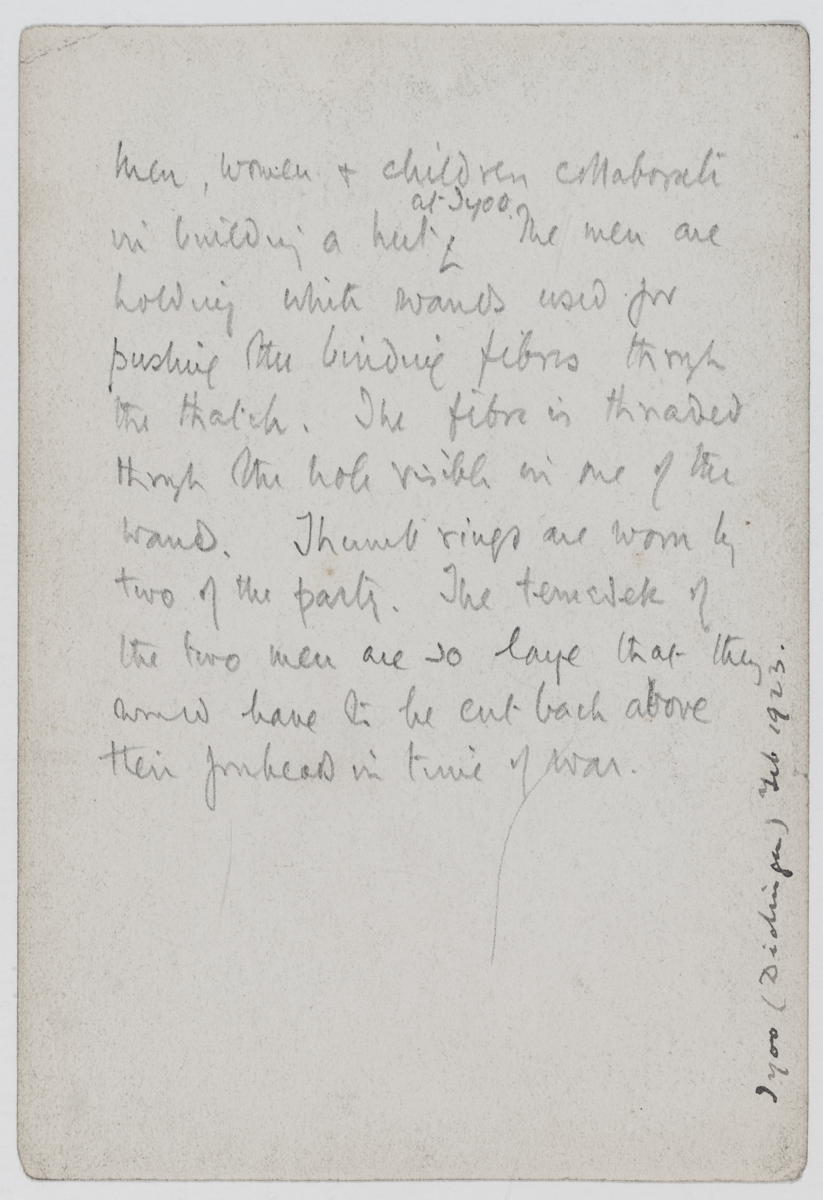 Men, women + children collaborate
in building a hut at Iyoo. The men are
holding white wands used for
pushing the binding fibres through
the thatch. The fibre is threaded
through the hole visible in one of the
wands. Thumb rings are worn by
two of the party. The temedek of
the two men are so large that they
would have to be cut back above
their foreheads in time of war.
Iyoo (Didinga) Feb 1923.